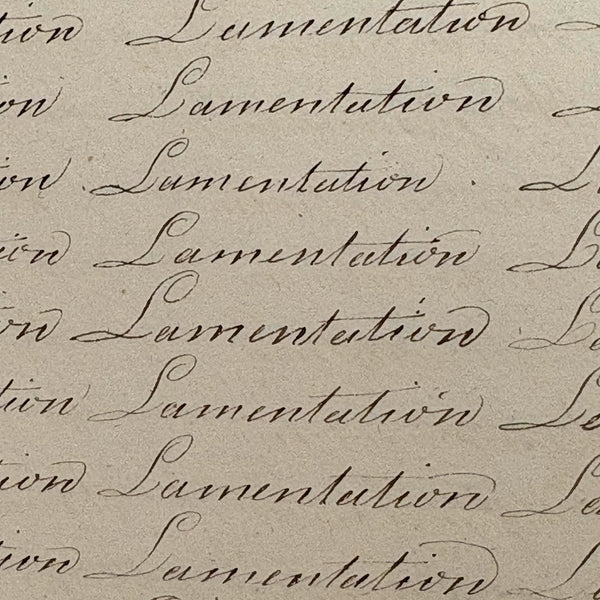 tion Lamentation L
ion Lamentation L
ion Lamentation L
tion Lamentation L
ion Lamentation La
tion Lamentation Le
tion Lamentation La
tion Lamentation La